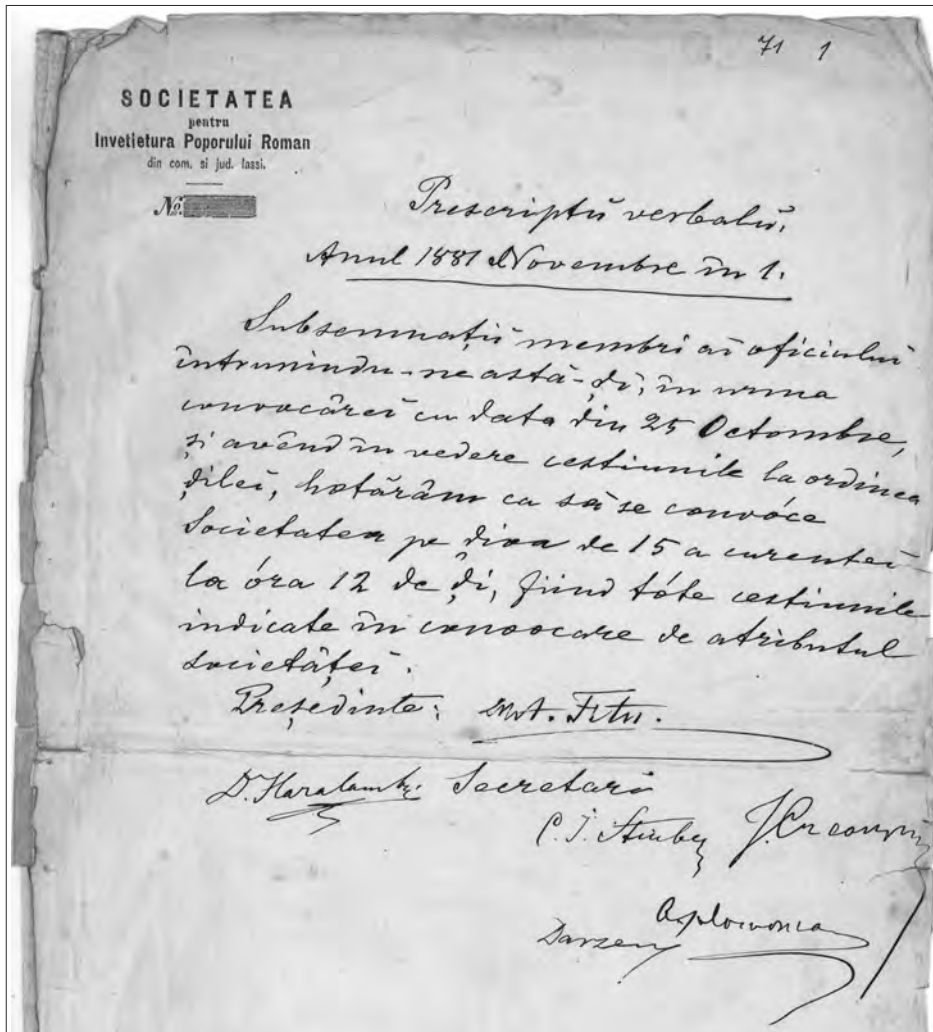 71 1
SOCIETATEA
pentru
Invetietura Poporului Roman
din com. si jud. Iassi.
No.
Prescriptŭ verbalŭ.
Anul 1881 Novembre în 1.
Subsemnații membri ai oficiului
întrunindu-ne astă-ḑi, în urma
convocărei cu data din 25 Octombre,
și avênd în vedere cestiunile la ordinea
ḑilei, hotărâm ca să se convóce
Societatea pe ḑioa de 15 a curentei
la óra 12 de ḑi, fiind tóte cestiunile
indicate în convocare de atributul
societăței.
Președinte: Mst. Titu.
D. Haralamb. Secretari
C. I. Știubey